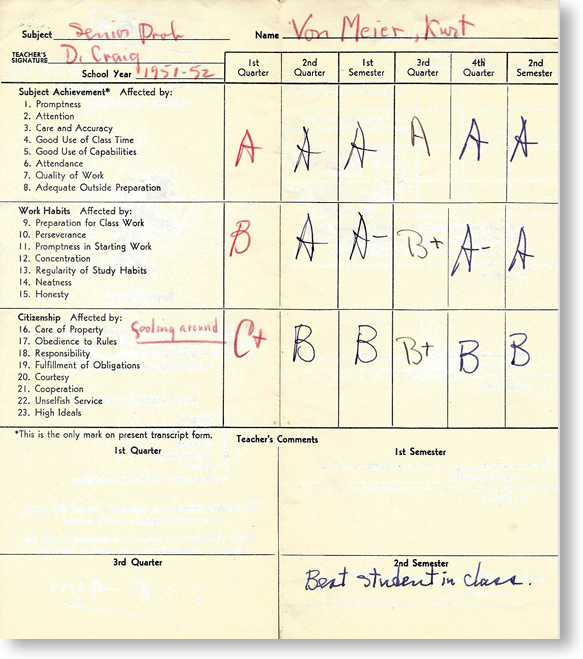 Subject Senior Prob Name Von Meier, Kurt
TEACHER'S SIGNATURE D. Craig
School Year 1951-52
1st Quarter 2nd Quarter 1st Semester 3rd Quarter 4th Quarter 2nd Semester
Subject Achievement* Affected by:
1. Promptness
2. Attention
3. Care and Accuracy
4. Good Use of Class Time
5. Good Use of Capabilities
6. Attendance
7. Quality of Work
8. Adequate Outside Preparation
A A A A A A
Work Habits Affected by:
9. Preparation for Class Work
10. Perseverance
11. Promptness in Starting Work
12. Concentration
13. Regularity of Study Habits
14. Neatness
15. Honesty
B A A- B+ A- A
Citizenship Affected by:
16. Care of Property
17. Obedience to Rules
18. Responsibility
19. Fulfillment of Obligations
20. Courtesy
21. Cooperation
22. Unselfish Service
23. High Ideals
fooling around
C+ B B B+ B B
*This is the only mark on present transcript form. Teacher's Comments
1st Quarter 1st Semester
3rd Quarter 2nd Semester
Best student in class.